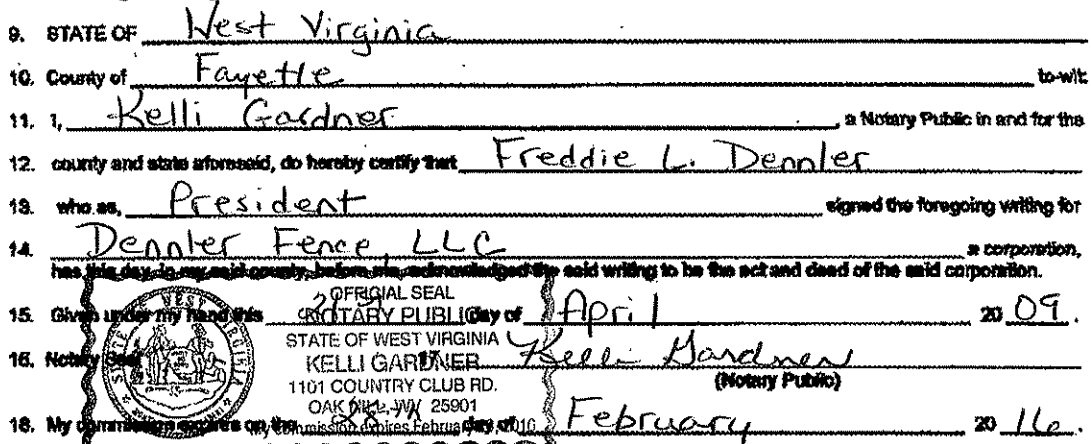 9. STATE OF West Virginia
10. County of Fayette to-wit:
11. I, Kelli Gardner, a Notary Public in and for the
12. county and state aforesaid, do hereby certify that Freddie L. Dennler
13. who as, President signed the foregoing writing for
14. Dennler Fence, LLC a corporation,
has this day, in my said county, before me, acknowledged the said writing to be the act and deed of the said corporation.
15. Given under my hand this day of April 20 09.
OFFICIAL SEAL
NOTARY PUBLIC
STATE OF WEST VIRGINIA
KELLI GARDNER
1101 COUNTRY CLUB RD.
OAK HILL, WV 25901
My commission expires February
STATE OF WEST VIRGINIA
16. Notary Seal 17. Kelli Gardner
(Notary Public)
18. My commission expires on the day of February 20 16